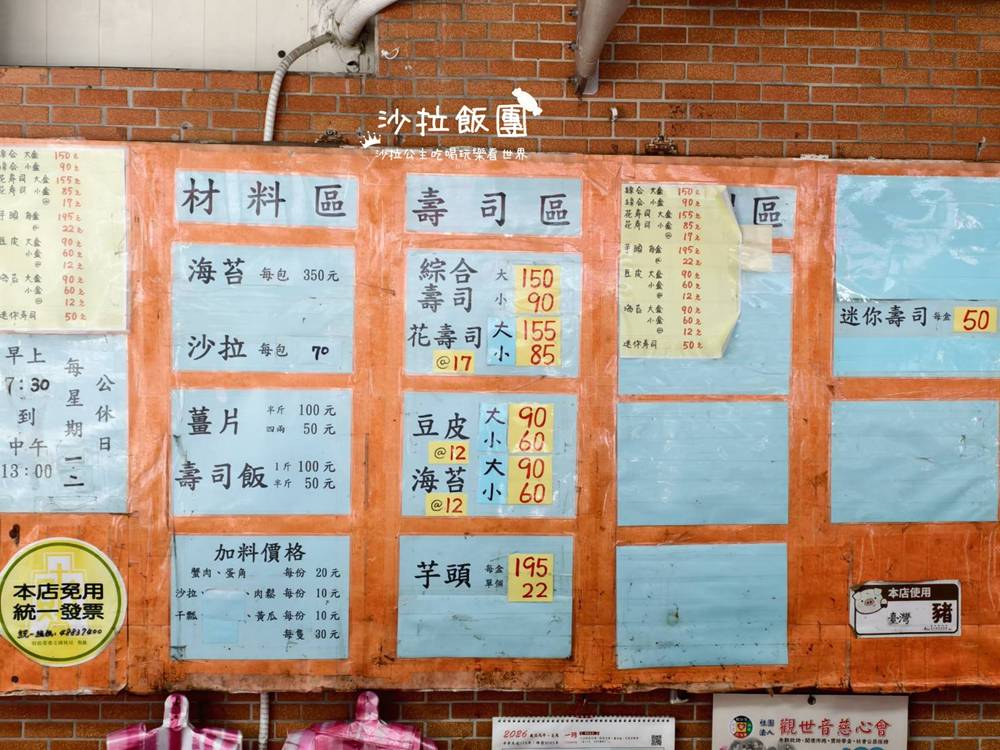 沙拉飯團
沙拉公主吃喝玩樂看世界
綜合 大盒 150元
綜合 小盒 90元
花壽司 大盒 155元
花壽司 小盒 85元
@ 17元
芋頭 每盒 195元
@ 22元
豆皮 大盒 90元
小盒 60元
@ 12元
海苔 大盒 90元
小盒 60元
@ 12元
迷你壽司 50元
早上
7:30
到
中午
13:00
每星期一二
公休日
本店免用
統一發票
統一編號:48837400
材料區
海苔 每包 350元
沙拉 每包 70
薑片 半斤 100元
四兩 50元
壽司飯 1斤 100元
半斤 50元
加料價格
蟹肉、蛋角 每份 20元
沙拉、 、肉鬆 每份 10元
干瓢 、黃瓜 每份 10元
每隻 30元
壽司區
綜合壽司 大 150
小 90
花壽司 大 155
@17 小 85
豆皮 大 90
@12 小 60
海苔 大 90
@12 小 60
芋頭 每盒 195
單個 22
區
綜合 大盒 150元
綜合 小盒 90元
花壽司 大盒 155元
花壽司 小盒 85元
@ 17元
芋頭 每盒 195元
@ 22元
豆皮 大盒 90元
小盒 60元
@ 12元
海苔 大盒 90元
小盒 60元
@ 12元
迷你壽司 50元
迷你壽司 每盒 50
本店使用
臺灣 豬
2026
一月
社團法人 觀世音慈心會